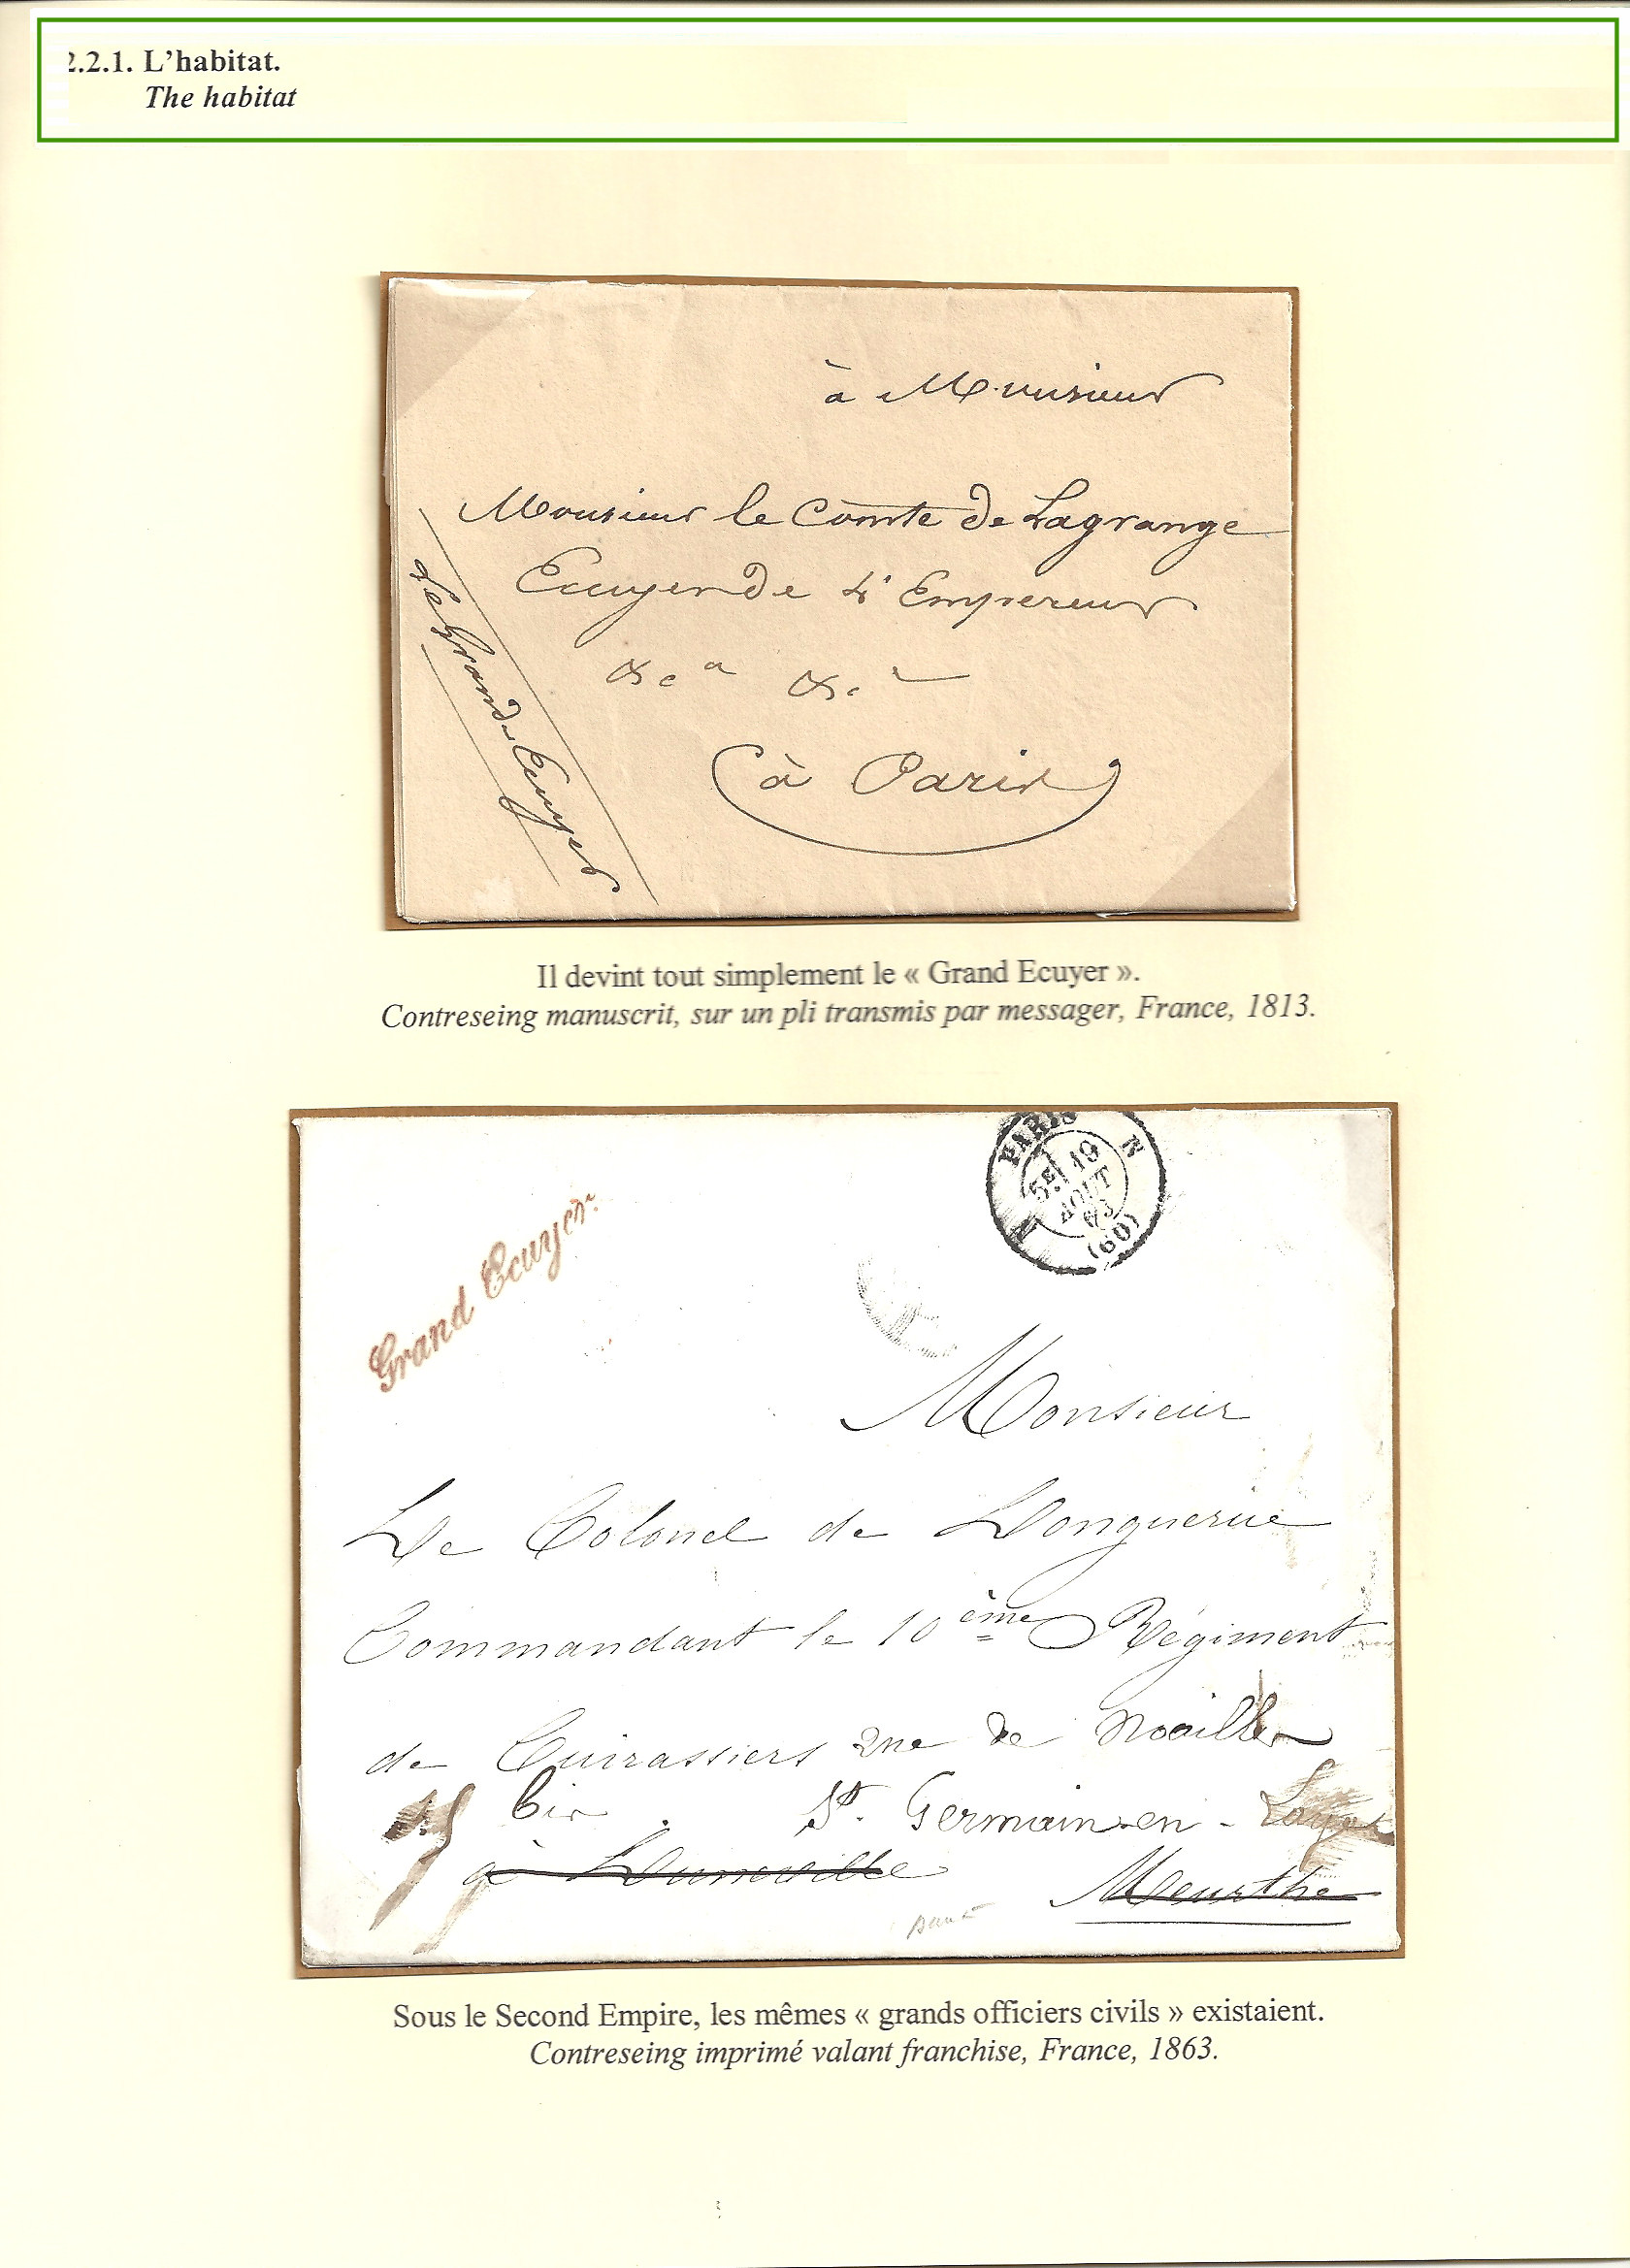 2.2.1. L’habitat.
The habitat
à Monsieur
Monsieur le Comte de Lagrange
Ecuyer de L'Empereur
&c a &c a
à Paris
Le Grand Ecuyer
Il devint tout simplement le « Grand Ecuyer ».
Contreseing manuscrit, sur un pli transmis par messager, France, 1813.
PARIS
5E 19
AOUT
63
(60)
Grand Ecuyer.
Monsieur
Le Colonel de Longuerue
Commandant le 10 ème Régiment
de Cuirassiers rue de Noailles
15 bis St. Germain-en-Laye
à Luneville Meurthe
Sous le Second Empire, les mêmes « grands officiers civils » existaient.
Contreseing imprimé valant franchise, France, 1863.